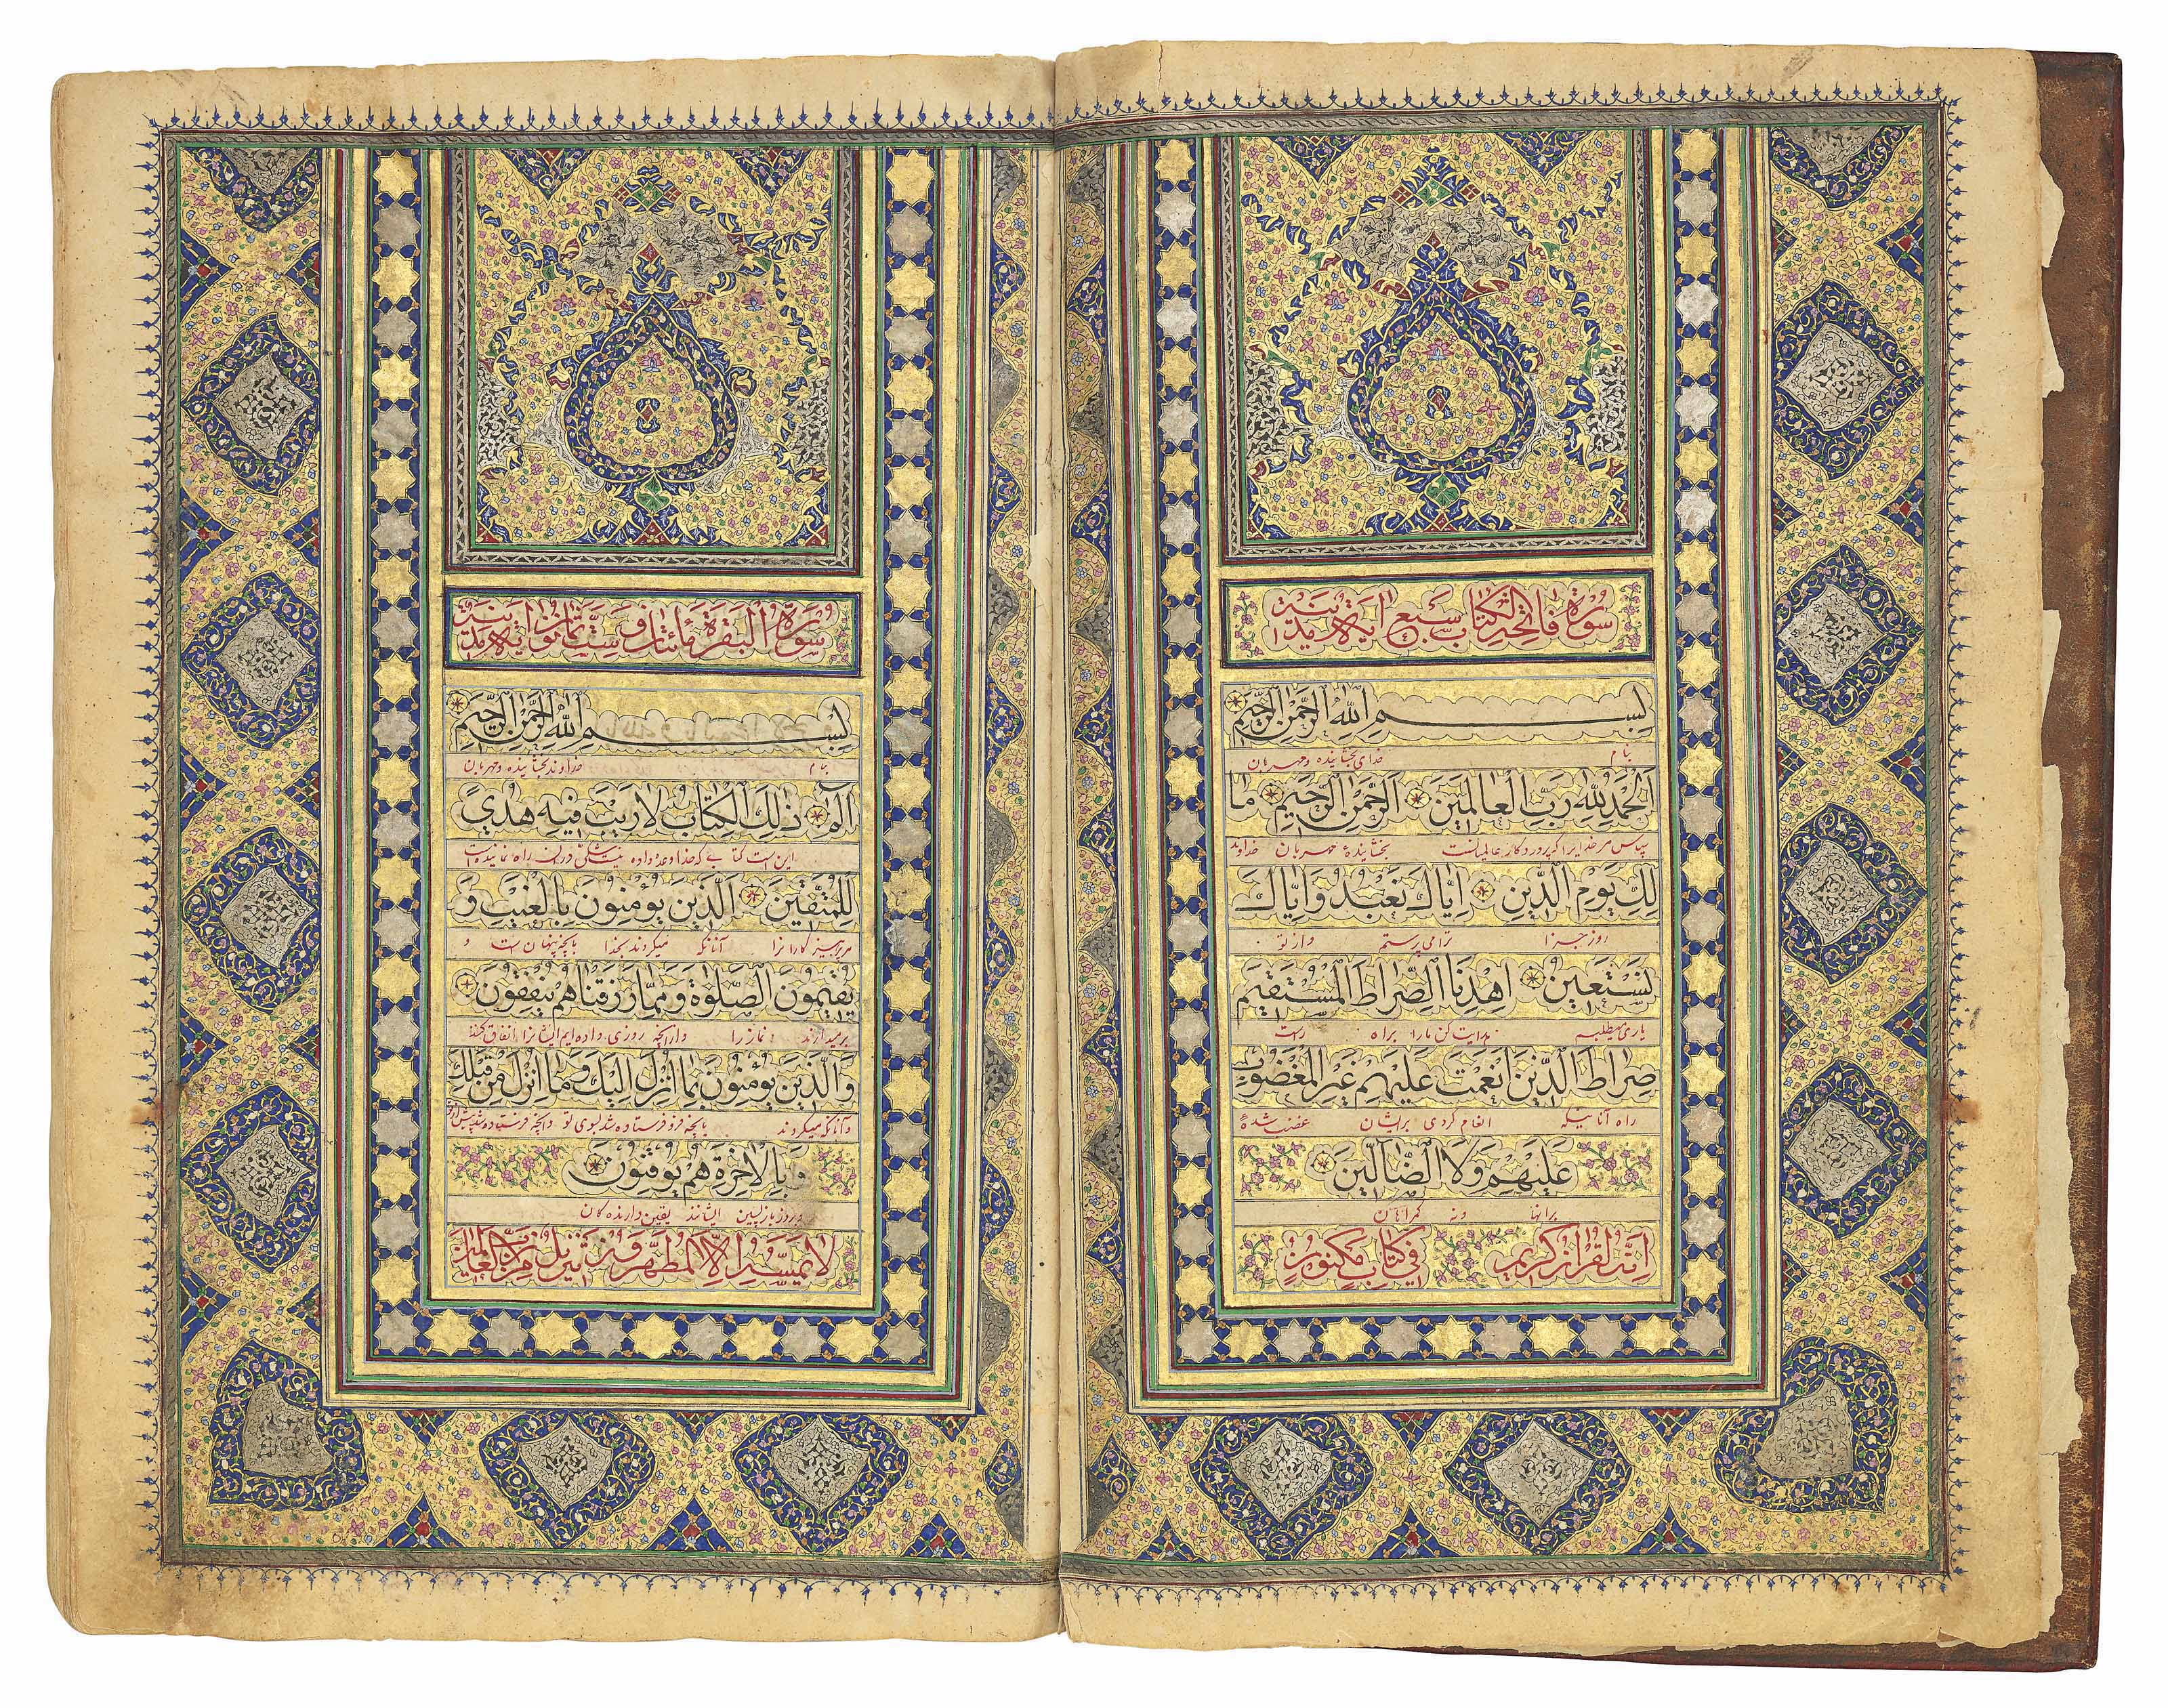 سورة فاتحة الكتاب سبع اية مدينة
بِسْمِ اللّٰهِ الرَّحْمٰنِ الرَّحِيمِ
بنام خدای بخشاینده و مهربان
اَلْحَمْدُ لِلّٰهِ رَبِّ الْعَالَمِينَ اَلرَّحْمٰنِ الرَّحِيمِ مَا
سپاس مر خدایرا که پروردگار عالمیانست بخشایندهٔ مهربان خداوند
لِكِ يَوْمِ الدِّينِ اِيَّاكَ نَعْبُدُ وَاِيَّاكَ
روز جزا ترا می پرستم و از تو
نَسْتَعِينُ اِهْدِنَا الصِّرَاطَ الْمُسْتَقِيمَ
یاری میطلبم هدایت کن ما را براه راست
صِرَاطَ الَّذِينَ اَنْعَمْتَ عَلَيْهِمْ غَيْرِ الْمَغْضُوبِ
راه آنانیکه انعام کردی برایشان غضب شدهٔ
عَلَيْهِمْ وَلَا الضَّالِّينَ
برانها ونه گمراهان
اِنَّهُ لَقُرْاٰنٌ كَرِيمٌ فِي كِتَابٍ مَكْنُونٍ
سورة البقرة مائتان و ست ثمانون اية مدينة
بِسْمِ اللّٰهِ الرَّحْمٰنِ الرَّحِيمِ
بنام خداوند بخشاینده و مهربان
الٓمٓ ذٰلِكَ الْكِتَابُ لَا رَيْبَ فِيهِ هُدًى
این است کتابی که خدا وعده داده نیست شکی در آن راه نماینده است
لِلْمُتَّقِينَ اَلَّذِينَ يُؤْمِنُونَ بِالْغَيْبِ وَ
مر پرهیزکارانرا آنانکه میگروند بخدا بانچه پنهان است و
يُقِيمُونَ الصَّلٰوةَ وَمِمَّا رَزَقْنَاهُمْ يُنْفِقُونَ
نماز را و از آنچه روزی داده ایم ایشانرا انفاق کنند
وَالَّذِينَ يُؤْمِنُونَ بِمَا اُنْزِلَ اِلَيْكَ وَمَا اُنْزِلَ مِنْ قَبْلِكَ
و آنانکه میگروند بانچه فرو فرستاده شد بسوی تو و آنچه فرستاده شد پیش از تو
وَبِالْاٰخِرَةِ هُمْ يُوقِنُونَ
و بروز بازپسین ایشانند یقین دارنده گان
لَا يَمَسُّهُ اِلَّا الْمُطَهَّرُونَ تَنْزِيلٌ مِنْ رَبِّ الْعَالَمِينَ